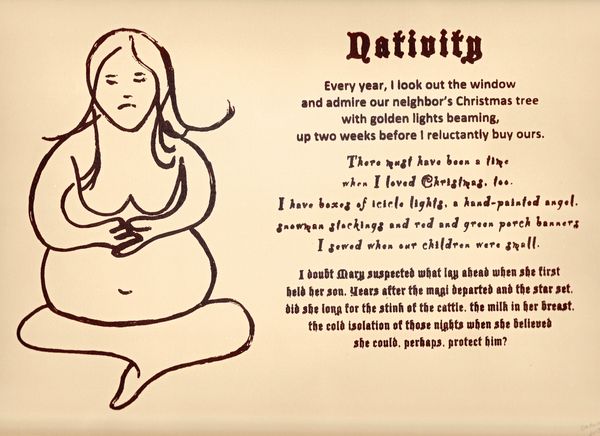 Nativity
Every year, I look out the window
and admire our neighbor's Christmas tree
with golden lights beaming,
up two weeks before I reluctantly buy ours.
There must have been a time
when I loved Christmas, too.
I have boxes of icicle lights, a hand-painted angel,
snowman stockings and red and green porch banners
I sewed when our children were small.
I doubt Mary suspected what lay ahead when she first
held her son. Years after the magi departed and the star set,
did she long for the stink of the cattle, the milk in her breast,
the cold isolation of those nights when she believed
she could, perhaps, protect him?